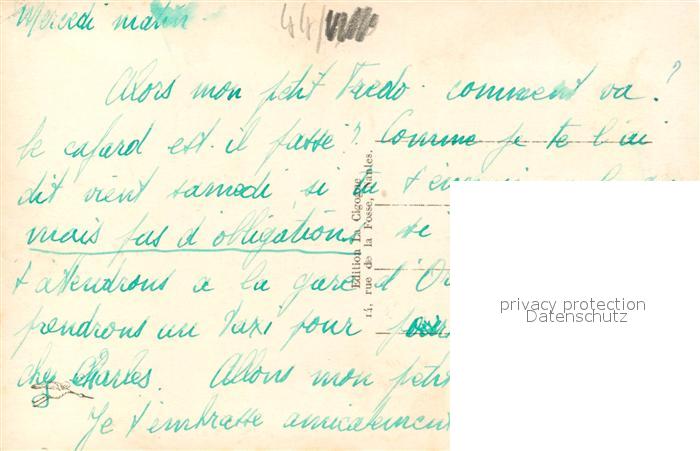 Mercedi matin
44/
Alors mon petit Fredo comment va ?
le cafard est-il passé ? Comme je te l'ai
dit vient samedi si tu t'
mais pas d'obligations si
t'attendrons a la gare d'
prendrons un taxi pour
chez Charles. Allons mon petit
Je t'embrasse amicalement
Edition La Cigogne
14, rue de la Fosse, Nantes.
privacy protection
Datenschutz